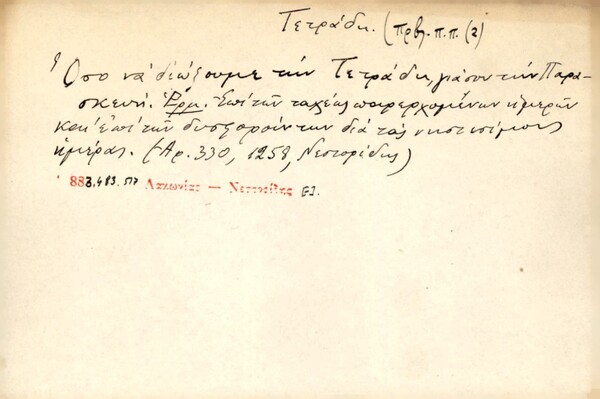 Τετράδη. (πρβ. π.π. (2)
Ὅσο νὰ διώξουμε τὴν Τετράδη, γιά σου τὴν Παρα-
σκευή. Ἑρμ. Ἐπὶ τῶν ταχέως παρερχομένων ἡμερῶν
καὶ ἐπὶ τῶν δυσφορούντων διὰ τὰς νηστισίμους
ἡμέρας. (Ἀρ. 330, 1258, Νεστορίδης)
883,483. Λακωνίας — Νεστορίδης